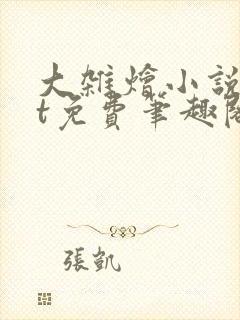 大雜燴小說
t免費筆趣閣
張凱